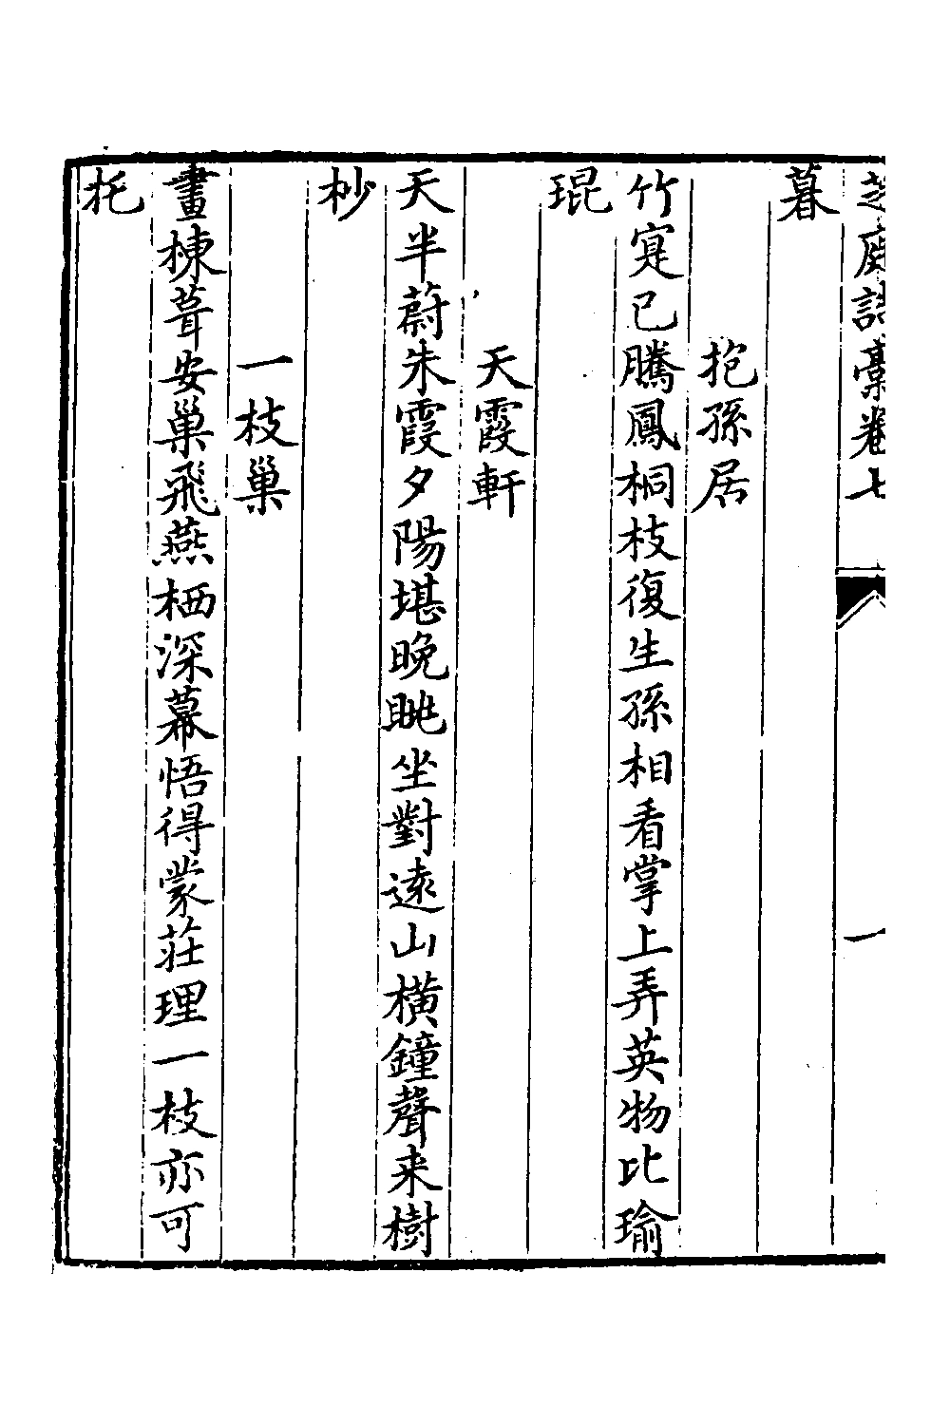 芝庭詩稾卷七 一
暮
抱孫居
竹寔已騰鳳桐枝復生孫相看掌上弄英物比瑜
琨
天霞軒
天半蔚朱霞夕陽堪晚眺坐對遠山橫鐘聲来樹
杪
一枝巢
畫棟葺安巢飛燕栖深幕悟得蒙莊理一枝亦可
托